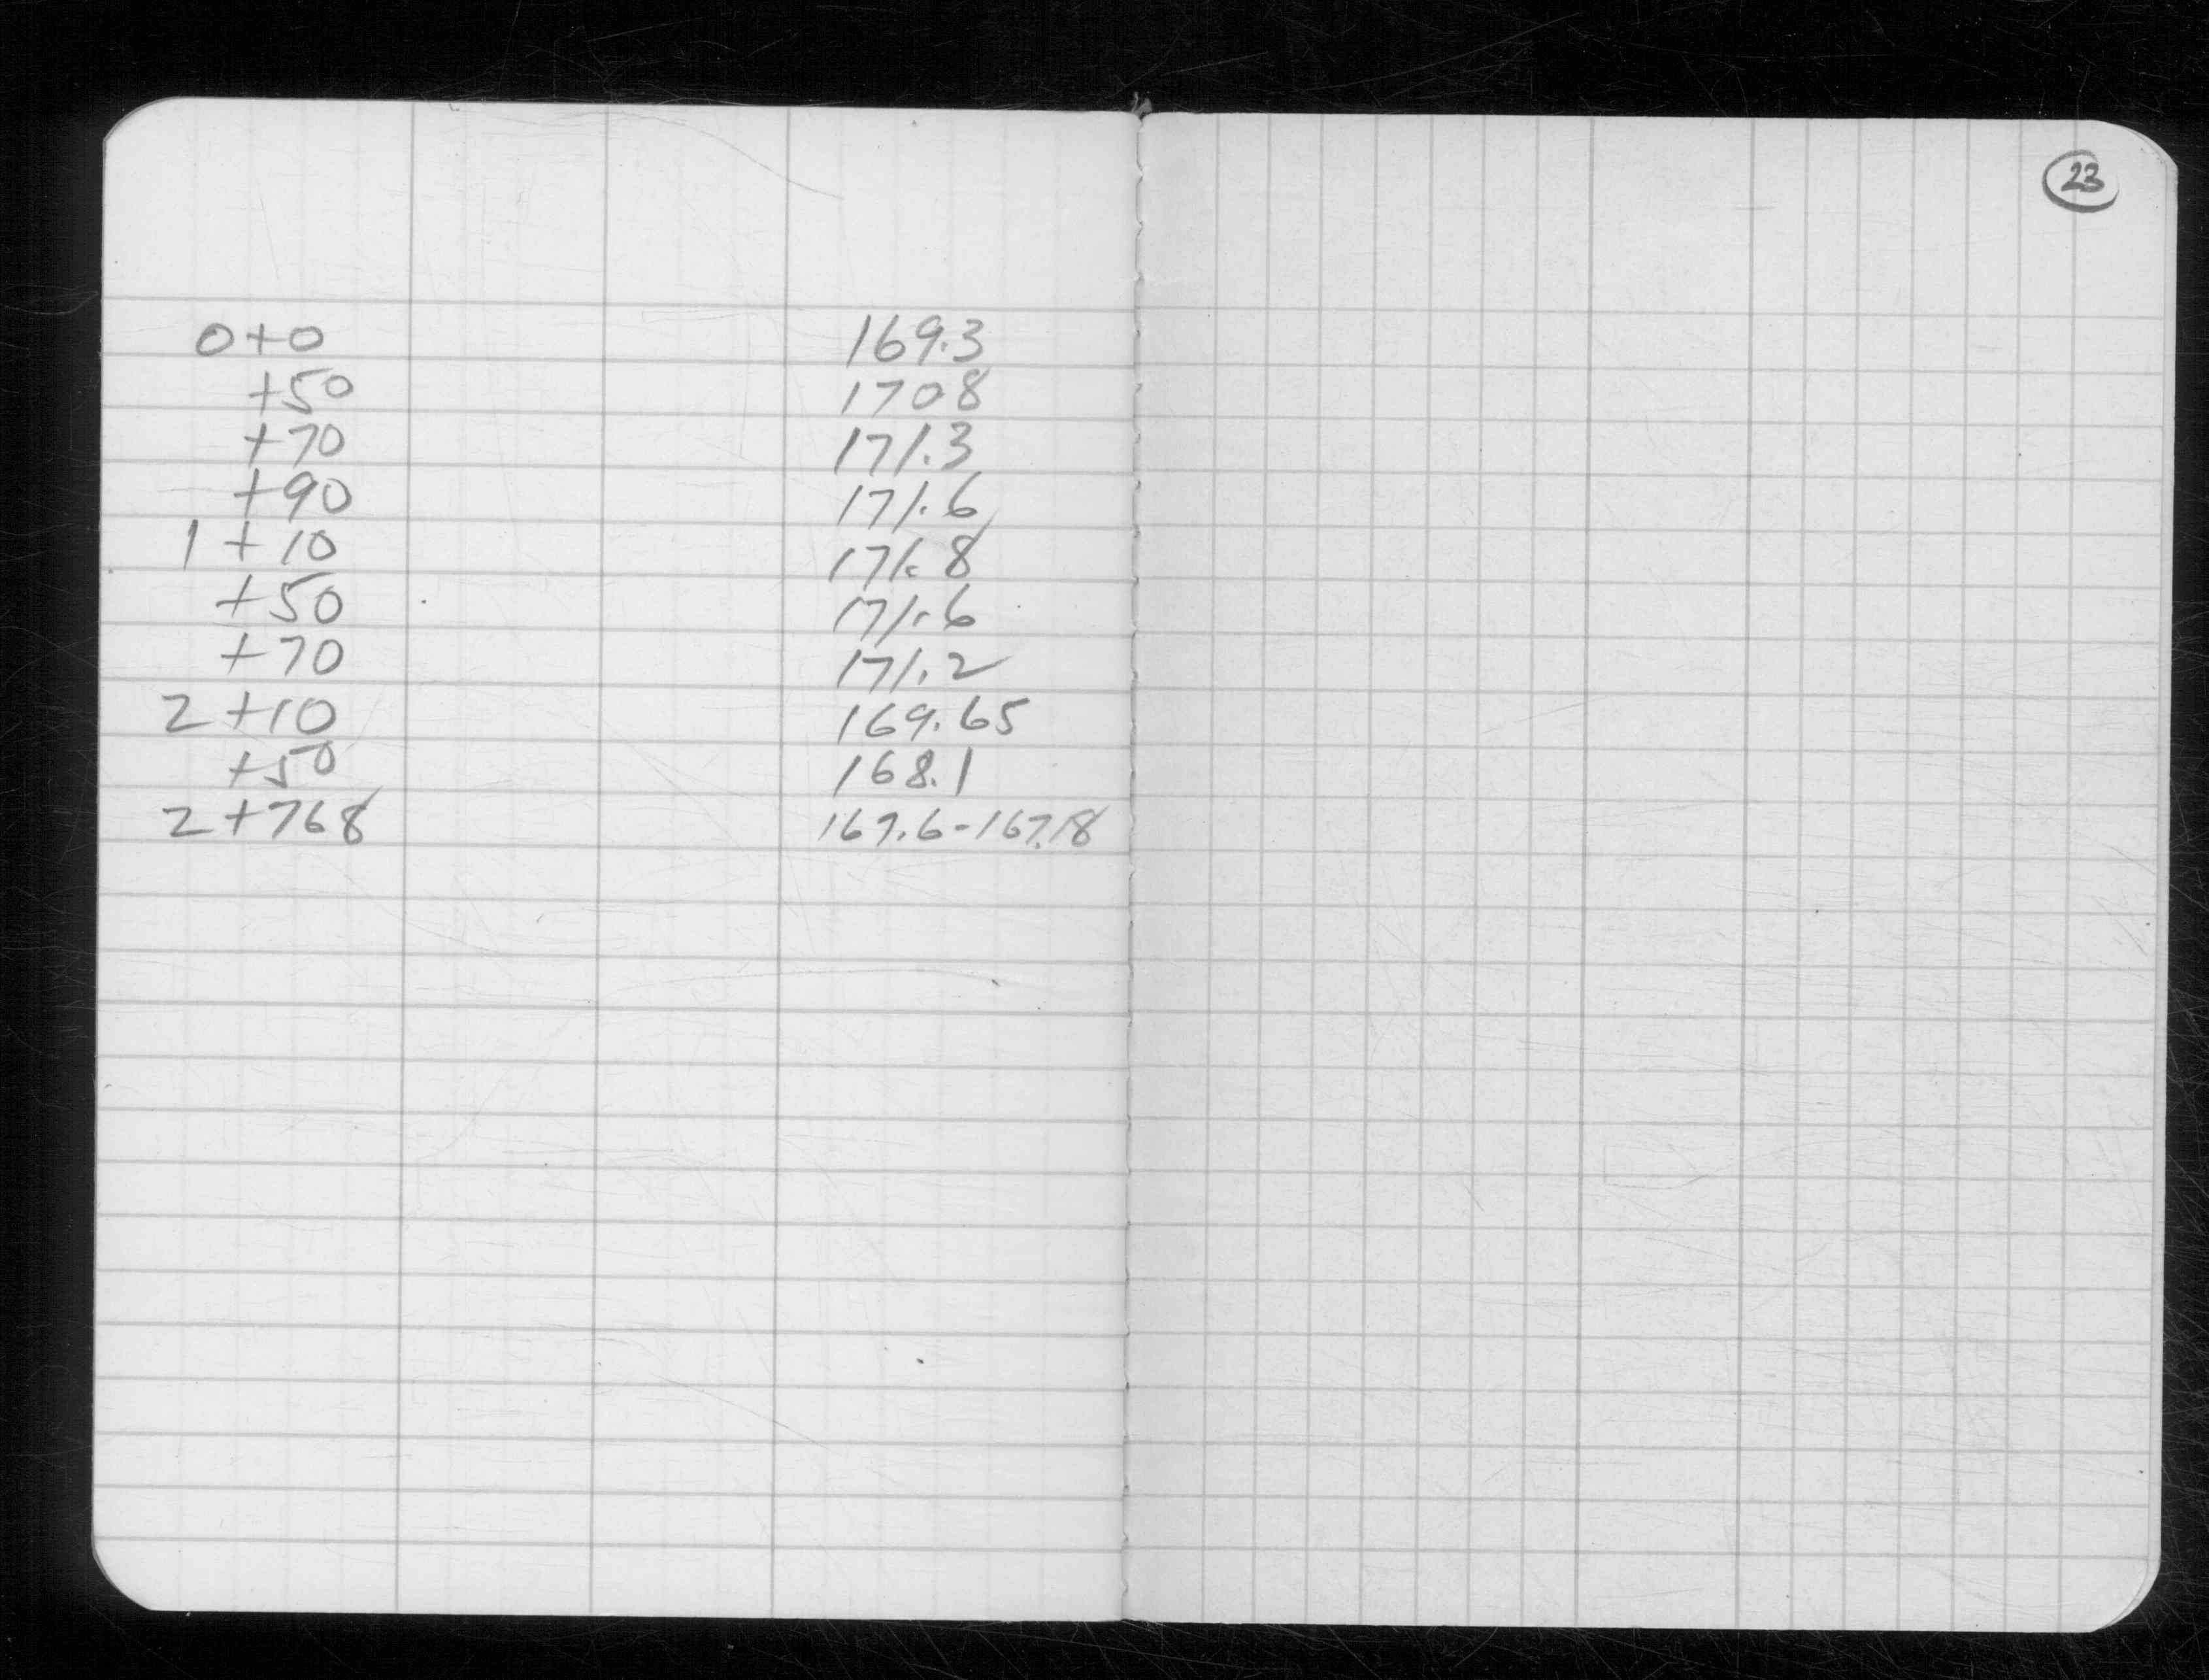 23
0+0 169.3
+50 170.8
+70 171.3
+90 171.6
1+10 171.8
+50 171.6
+70 171.2
2+10 169.65
+50 168.1
2+768 167.6-167.18